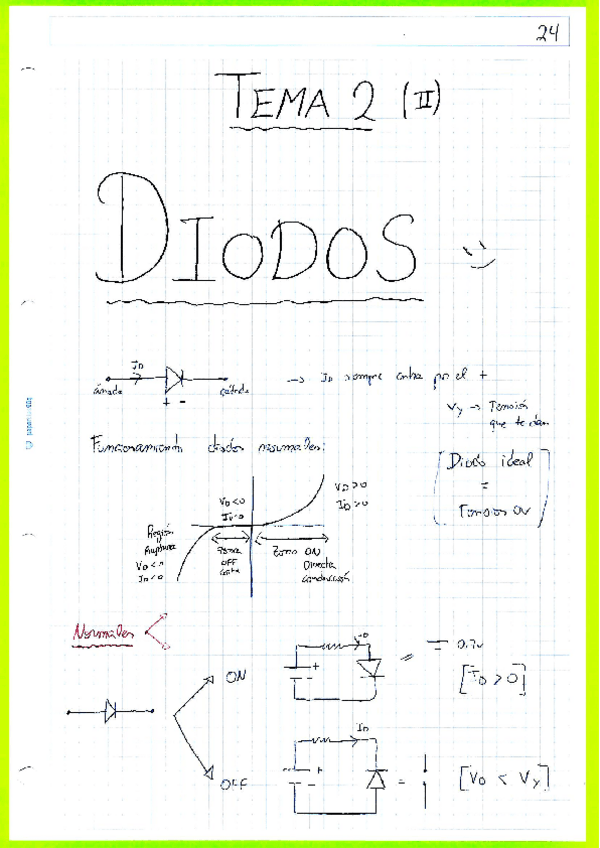 24
TEMA 2 (II)
DIODOS
ID
ánodo
cátodo
+ -
→ ID siempre entra por el +
Vγ → Tensión
que te dan
Funcionamiento diodos normales:
[Diodo ideal
=
Tensión 0V]
VD<0
VD>0
ID>0
Región
Ruptura
VD<0
ID<0
Zona
OFF
Corte
Zona ON
Directa
Conducción
Normales
ON
+
-
= 0.7v
[ID > 0]
OFF
ID
+
-
=
[VD < Vγ]